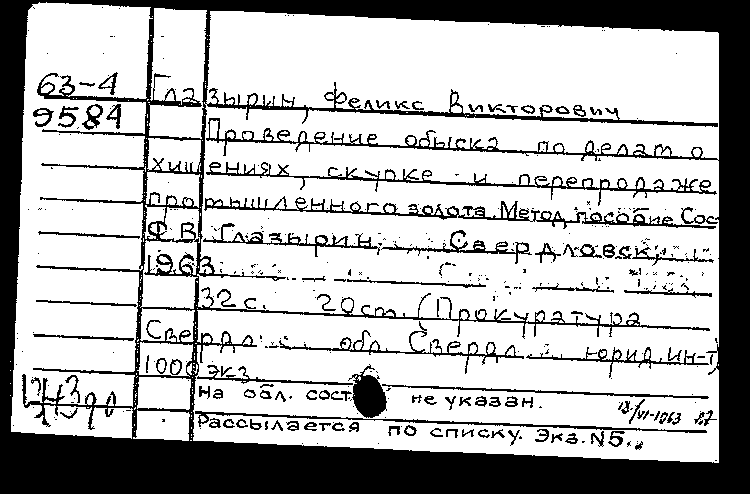 63-4 Глазырин, Феликс Викторович
9584
Проведение обыска по делам о
хищениях, скупке и перепродаже
промышленного золота. Метод. пособие Сос
Ф В Глазырин, Свердловск,
1963. 1963.
32 с. 20 см. (Прокуратура
Свердл. обл. Свердл. юрид. ин-т)
1000 экз.
На обл. сост. не указан.
Рассылается по списку. Экз. N5.